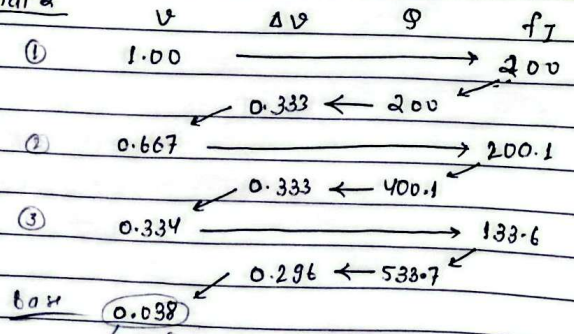 v Δv φ fI
① 1.00 → 200
0.333 ← 200
② 0.667 → 200.1
0.333 ← 400.1
③ 0.334 → 133.6
0.296 ← 533.7
Base 0.038